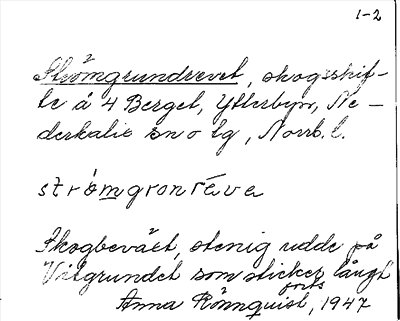 1-2
Strömgrundrevet, skogsskif-
te å 4 Berget, Ytterbyn, Ne-
derkalix sn o tg, Norrb. l.
strömgronréve
Skogbeväxt, stenig udde på
Vitgrundet som sticker långt
forts
Anna Rönnquist, 1947